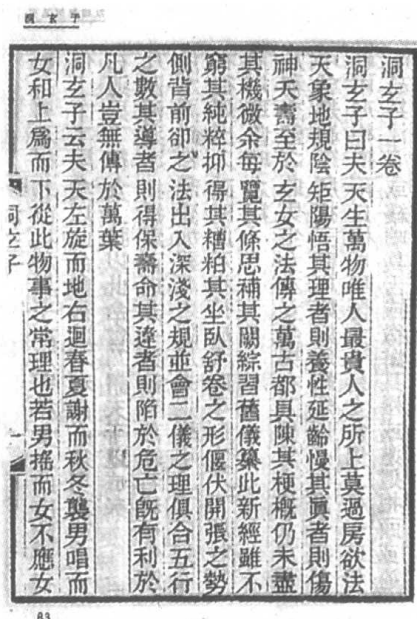 洞玄子
洞玄子一卷
洞玄子曰夫天生萬物唯人最貴人之所上莫過房欲法
天象地規陰矩陽悟其理者則養性延齡慢其眞者則傷
神夭壽至於玄女之法傳之萬古都具陳其梗概仍未盡
其機微余每覽其條思補其闕綜習舊儀纂此新經雖不
窮其純粹抑得其糟粕其坐臥舒卷之形偃伏開張之勢
側背前卻之法出入深淺之規並會二儀之理俱合五行
之數其導者則得保壽命其違者則陷於危亡旣有利於
凡人豈無傳於萬葉
洞玄子云夫天左旋而地右迴春夏謝而秋冬襲男唱而
女和上爲而下從此物事之常理也若男搖而女不應女
洞玄子
一
83